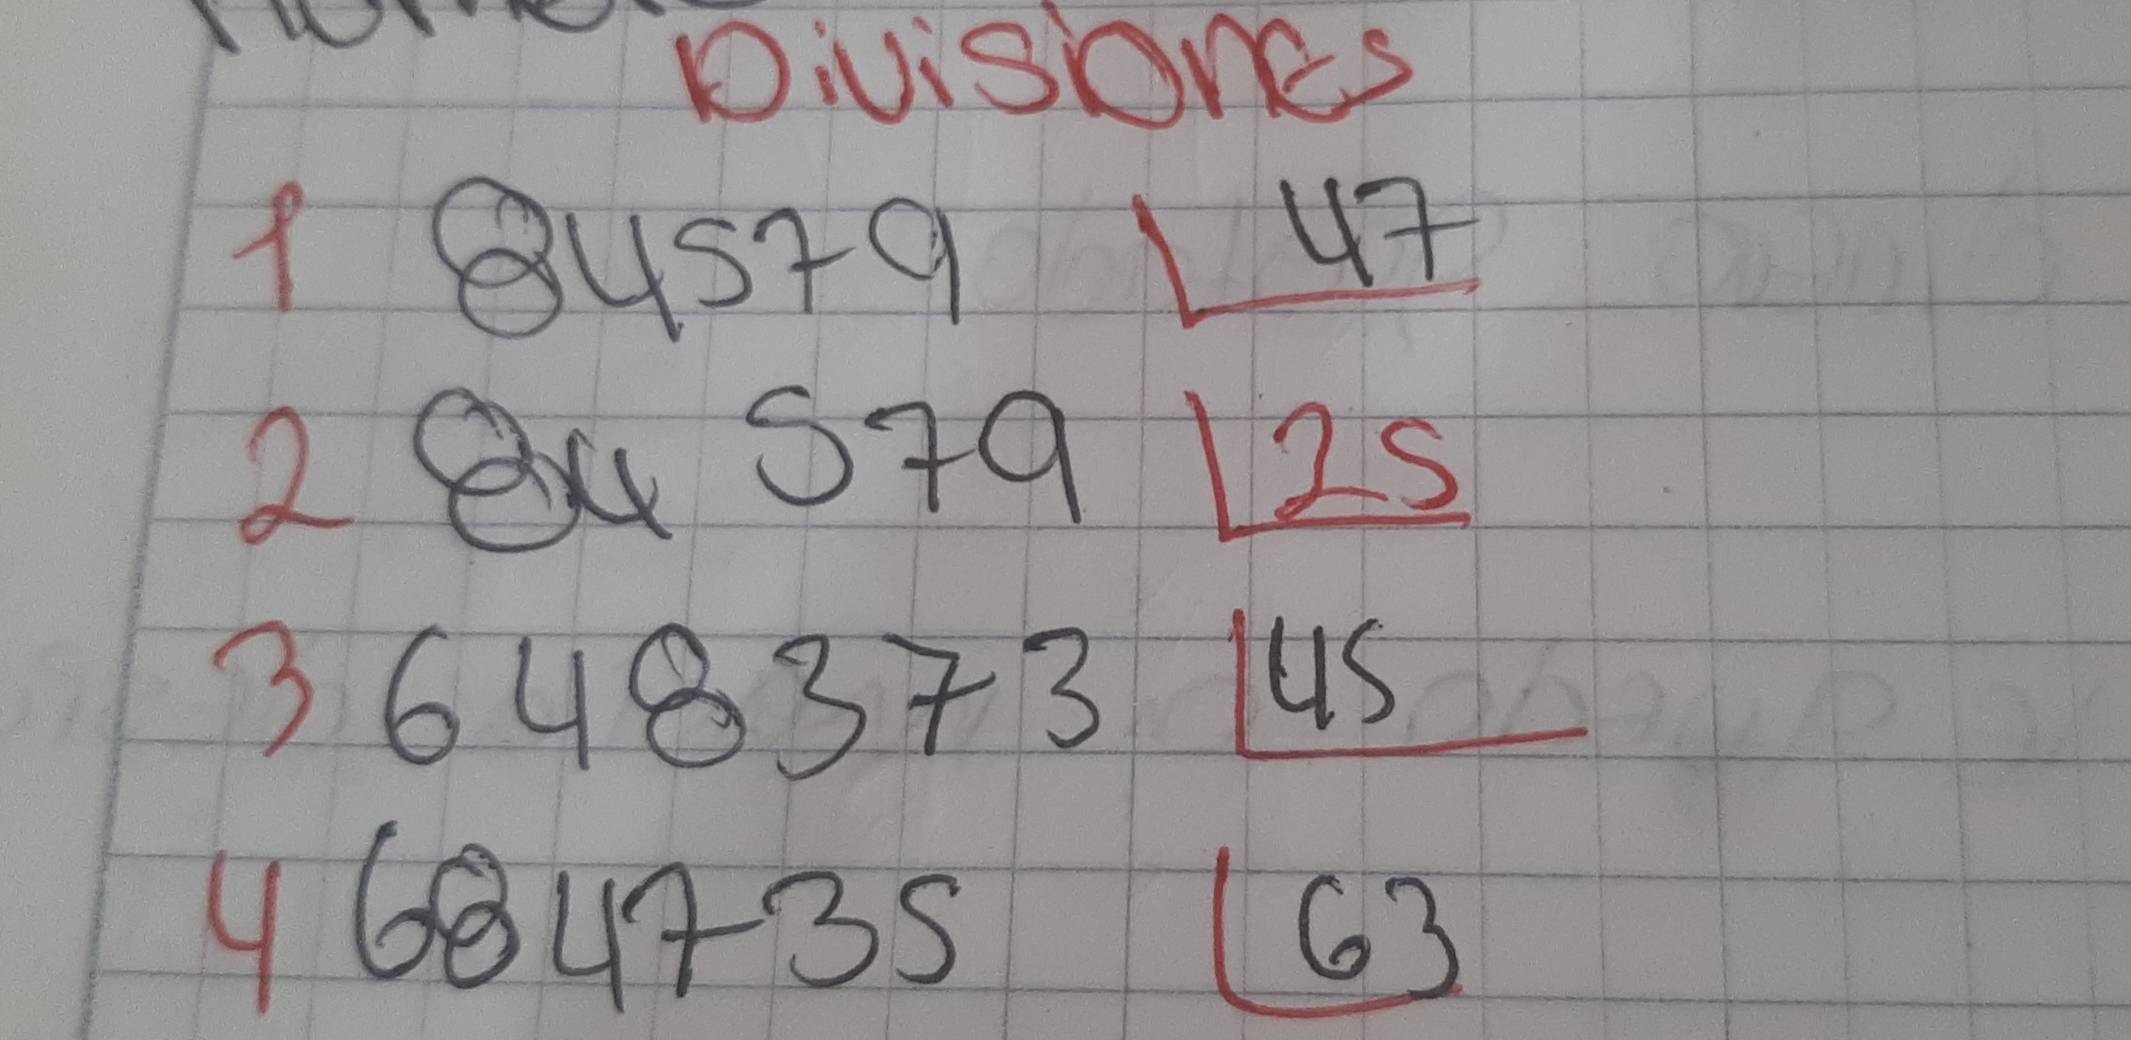 Divisiones
1 84579 47
2 84 579 25
3 648373 45
4 684735 63